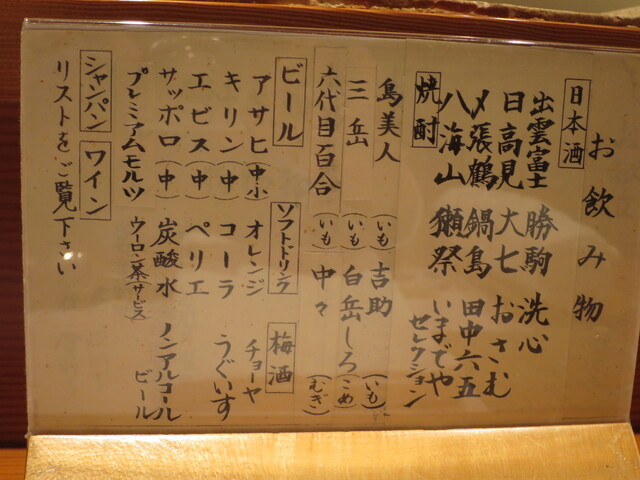 お飲み物
日本酒
出雲富士 勝駒 洗心
日高見 大七 おさむ
〆張鶴 鍋島 田中六五
八海山 獺祭 いまでや
セレクション
焼酎
鳥美人(いも) 吉助(いも)
三岳(いも) 白岳しろ(こめ)
六代目百合(いも) 中々(むぎ)
ビール ソフトドリンク 梅酒
アサヒ(中小) オレンジ チョーヤ
キリン(中) コーラ うぐいす
エビス(中) ペリエ
サッポロ(中) 炭酸水 ノンアルコール
ビール
プレミアムモルツ ウーロン茶(サービス)
シャンパン ワイン
リストをご覧下さい